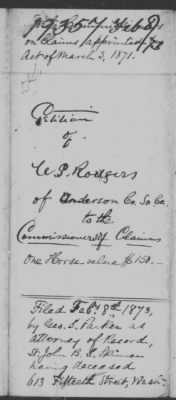 on Claims appointed
Act of March 3, 1871.
Petition
of
W. P. Rodgers
of Anderson Co. So Ca.
to the
Commissioners of Claims
One Horse value $150.—
Filed Feby 8th 1873,
by Geo. S. Parker as
Attorney of Record,
St. John B. L. Skinner
having deceased
613 Fifteenth Street, Wash.